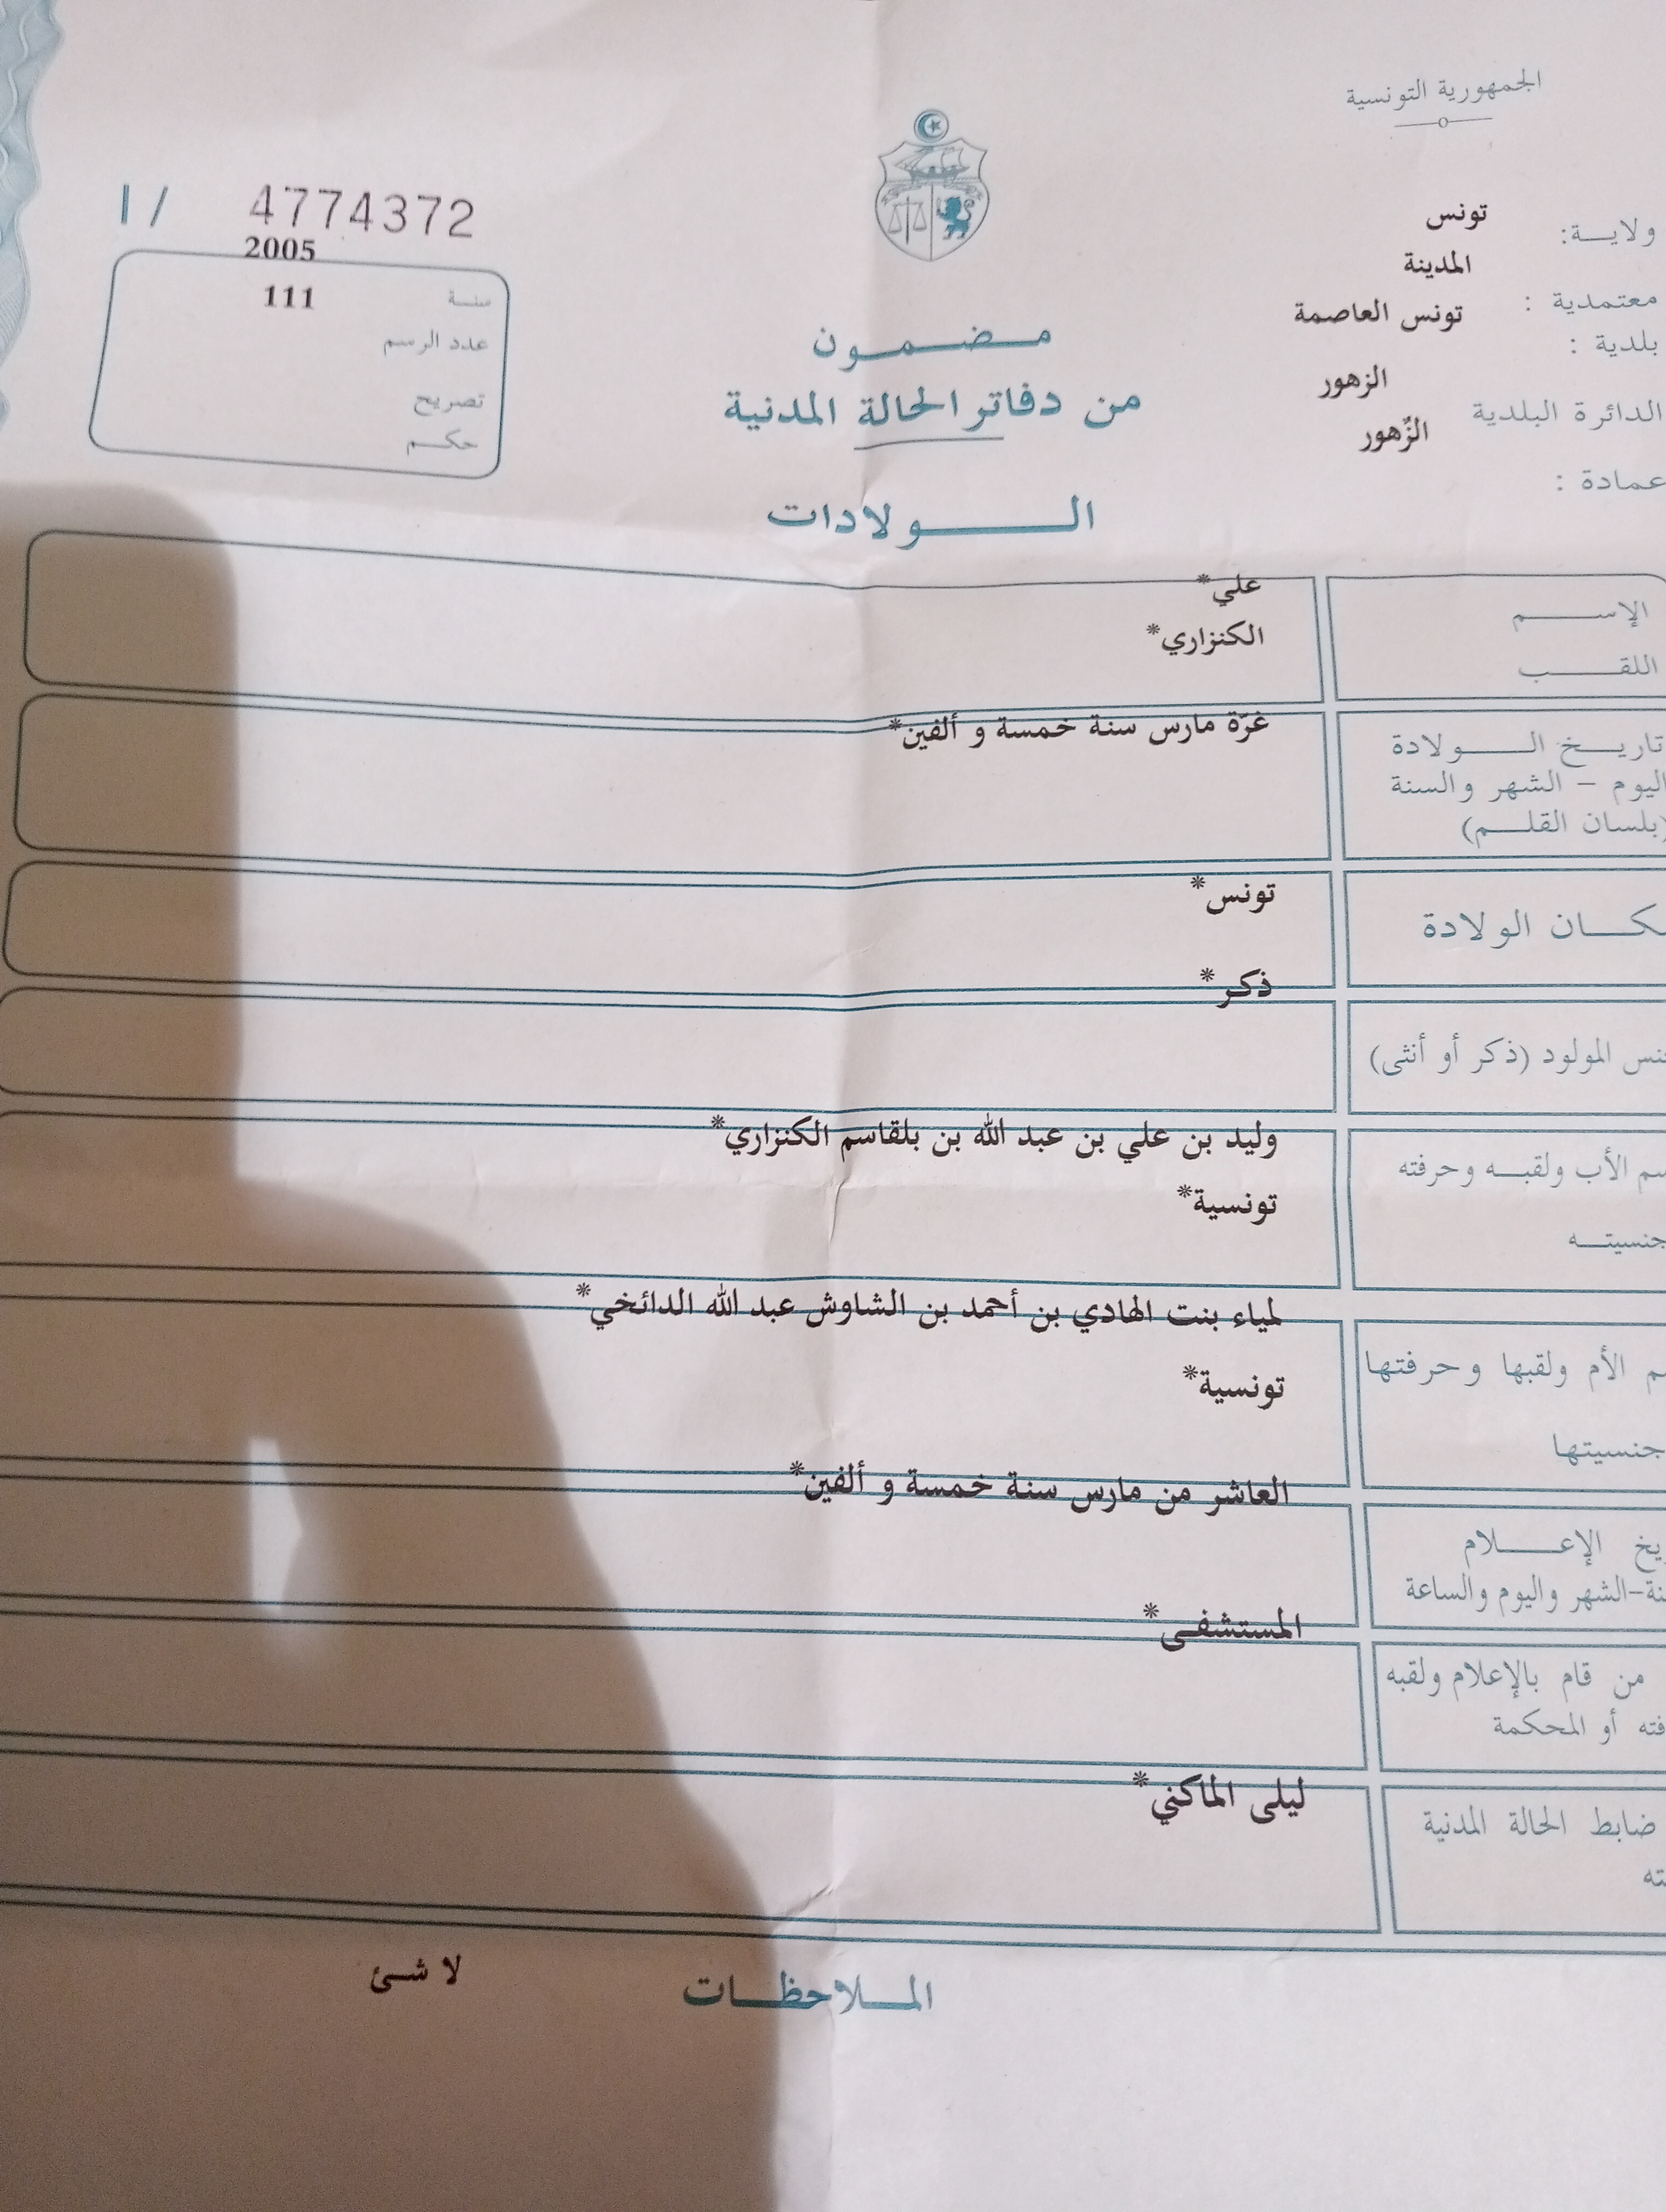 الجمهورية التونسية
ولايـــة: تونس
المدينة
معتمدية :
تونس العاصمة
بلدية :
الزهور
الدائرة البلدية
الزّهور
عمادة :
I / 4774372
2005
سنـة 111
عدد الرسم
تصريح
حكـم
مـضـمـون
من دفاتر الحالة المدنية
الــولادات
الإســـم علي*
اللقـــب الكنزاري*
تاريـــخ الـــولادة غرّة مارس سنة خمسة و ألفين*
اليوم – الشهر والسنة
(بلسان القلـــم)
الولادة تونس*
ذكر*
المولود (ذكر أو أنثى)
وليد بن علي بن عبد الله بن بلقاسم الكنزاري*
الأب ولقبـــه وحرفته
تونسية*
جنسيتـــه
لمياء بنت الهادي بن أحمد بن الشاوش عبد الله الدائخي*
الأم ولقبها وحرفتها
تونسية*
جنسيتها
العاشر من مارس سنة خمسة و ألفين*
الإعـــلام
الشهر واليوم والساعة
المستشفى*
من قام بالإعلام ولقبه
أو المحكمة
ليلى الماكني*
ضابط الحالة المدنية
الملاحظات لا شئ